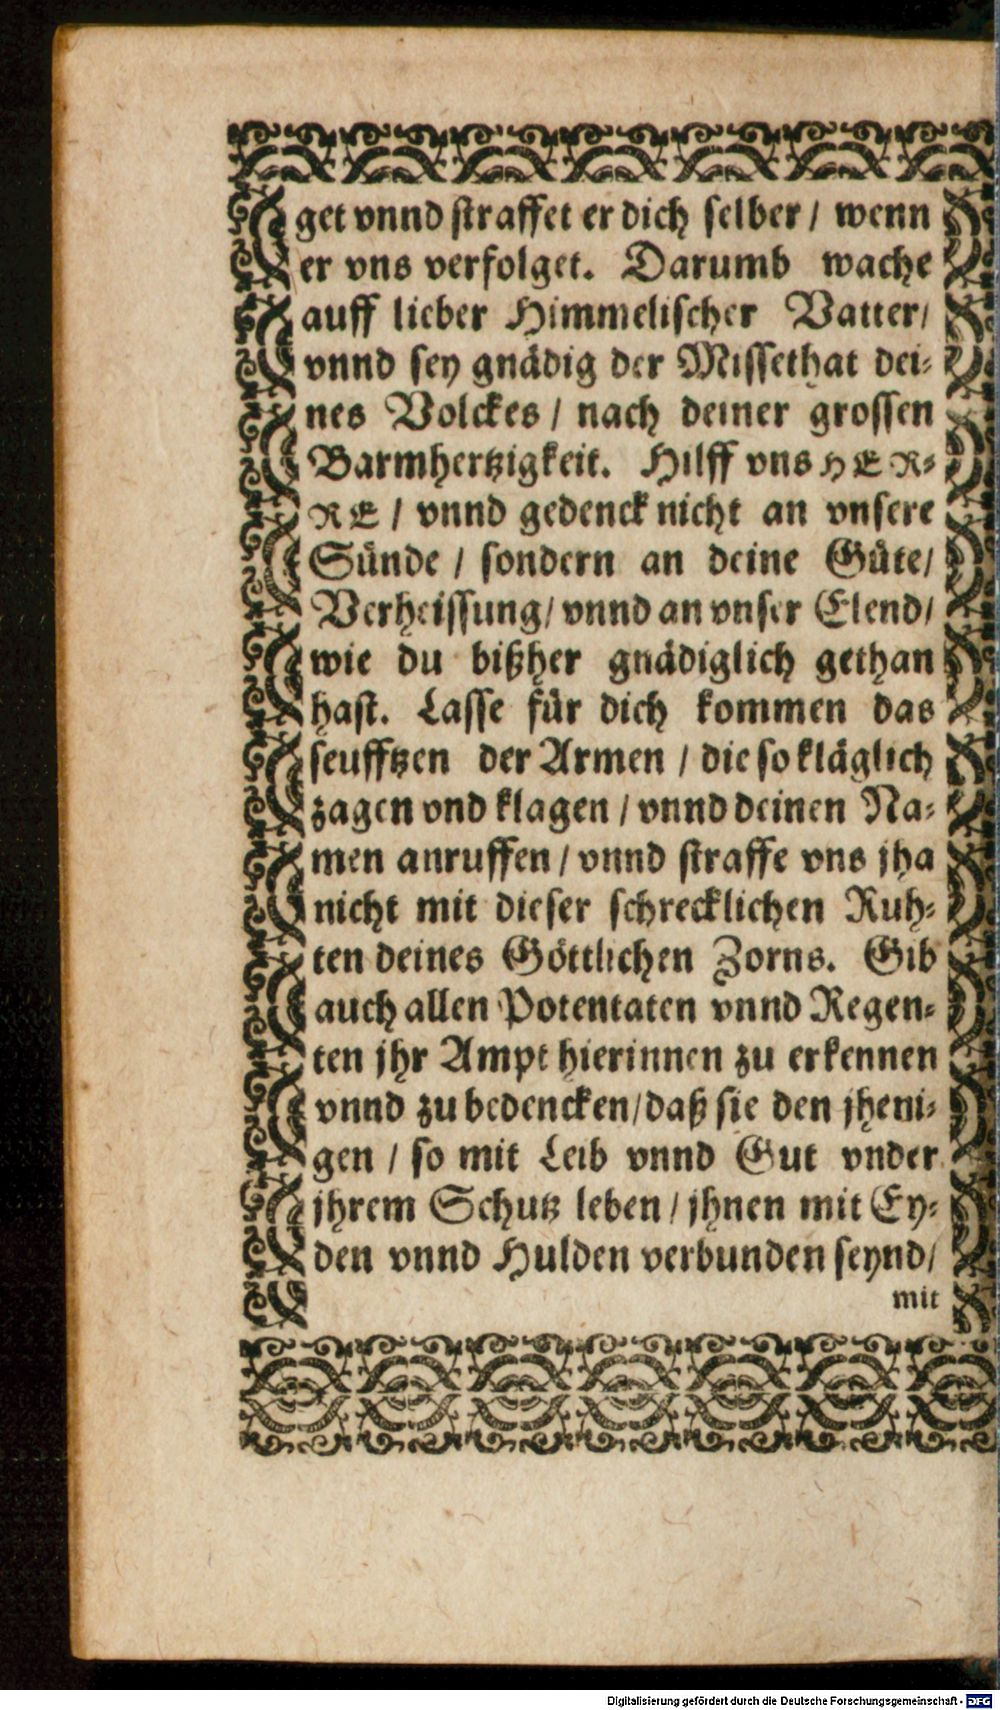 get vnnd straffet er dich selber / wenn
er vns verfolget. Darumb wache
auff lieber Himmelischer Vatter /
vnnd sey gnädig der Missethat dei-
nes Volckes / nach deiner grossen
Barmhertzigkeit. Hilff vns HER-
RE / vnnd gedenck nicht an vnsere
Sünde / sondern an deine Güte /
Verheissung / vnnd an vnser Elend /
wie du bißher gnädiglich gethan
hast. Lasse für dich kommen das
seufftzen der Armen / die so kläglich
zagen vnd klagen / vnnd deinen Na-
men anruffen / vnnd straffe vns jha
nicht mit dieser schrecklichen Ruh-
ten deines Göttlichen Zorns. Gib
auch allen Potentaten vnnd Regen-
ten jhr Ampt hierinnen zu erkennen
vnnd zu bedencken / daß sie den jheni-
gen / so mit Leib vnnd Gut vnder
jhrem Schutz leben / jhnen mit Ey-
den vnnd Hulden verbunden seynd /
mit
Digitalisierung gefördert durch die Deutsche Forschungsgemeinschaft - DFG